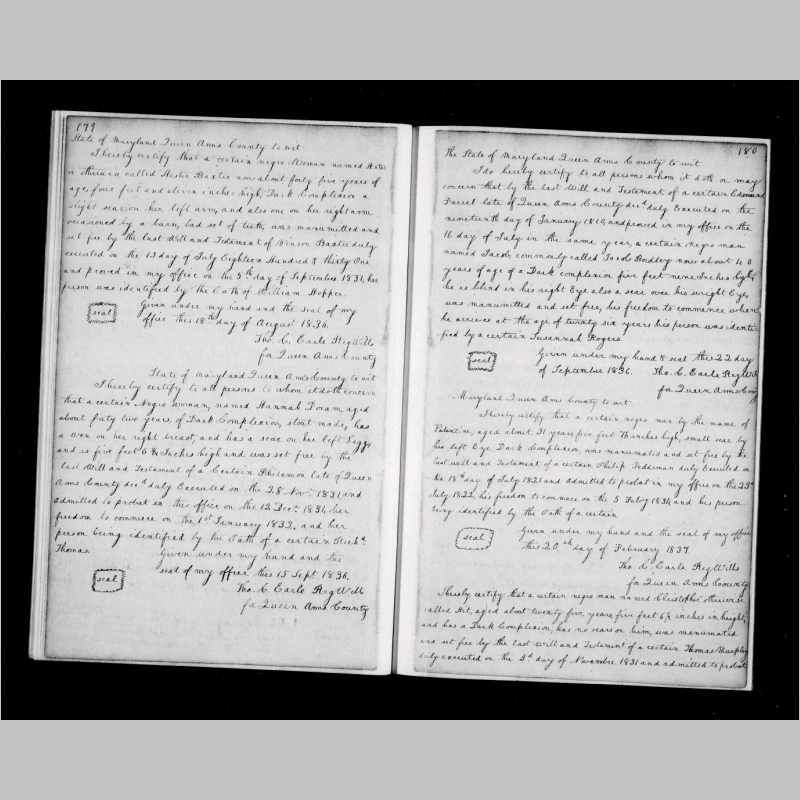 179
State of Maryland Queen Anns County to wit
I hereby certify that a certain negro Woman named
called Hester Baxter now about forty five years of
age, four feet and eleven inches high, Dark Complexion a
slight scar on her left arm, and also one on her right arm
occasioned by a burn, bad set of teeth, was manumitted and
set free by the Last Will and Testament of Vinson Baxter duly
executed on the 13 day of July Eighteen Hundred & thirty One
and proved in my office on the 5th day of September 1831, her
person was identified by the Oath of William Hopper.
Given under my hand and the seal of my
office this 18th day of August 1836.
seal
Tho. C. Earle Reg Wills
for Queen Anns County
State of Maryland Queen Anns County to wit
I hereby certify to all persons to whom it doth concern
that a certain Negro woman, named Hannah Doram, aged
about forty two years, of Dark Complexion, stout made, has
a Wen on her right breast, and has a scar on her left Legg
and is five feet 6¾ Inches high and was set free by the
Last Will and Testament of a Certain Philemon late of Queen
Ams County decd duly Executed on the 28 Novr 1831 and
admitted to probat in this office on the 12 Decr 1831, her
freedom to commence on the 1st January 1832, and her
person being identified by the Oath of a certain Richd
Thomas
Given under my hand and the
seal of my office, this 15 Sept 1836.
seal
Tho. C. Earle Reg Wills
for Queen Anns County
180
The State of Maryland Queen Anns County to wit
I do hereby certify to all persons whom it doth or may
concern that by the Last Will and Testament of a certain Edmund
late of Queen Ams County decd duly Executed on the
nineteenth day of January 1810, and proved in my office on the
16 day of July in the same year, a certain negro man
named Jacob, commonly called Jacob Bodley now about 40
years of age of a Dark complexion five feet nine Inches high
he is blind in his right Eye also a scar over his wright Eye,
was manumitted and set free, his freedom to commence when
he arrives at the age of twenty six years his person was identi
fied by a certain Susannah Rogers
Given under my hand & seal this 22 day
of September 1836. Tho. C. Earle Reg Wills
seal
for Queen Ams County
Maryland Queen Ams County to wit
I hereby certify that a certain negro man by the name of
aged about 31 years, five feet inches high, small scar by
his left Eye Dark Complexion, was manumitted and set free by the
Last will and Testament of a certain Philip Feddeman duly executed on
the 18th day of July 1821 and admitted to probat in my office on the 23d
July 1822, his freedom to commence on the 5 Feby 1834 and his person
being identified by the Oath of a certain
Given under my hand and the seal of my office
this 20th day of February 1837
seal
Tho C. Earle Reg Wills
for Queen Ams County
I hereby certify that a certain negro man named Christopher
called Kit, aged about twenty five years, five feet 6½ inches in height,
and has a Dark Complexion, has no scars on him, was manumated
and set free by the Last will and Testament of a certain Thomas Murphey
duly executed on the 3d day of November 1831 and admitted to probat